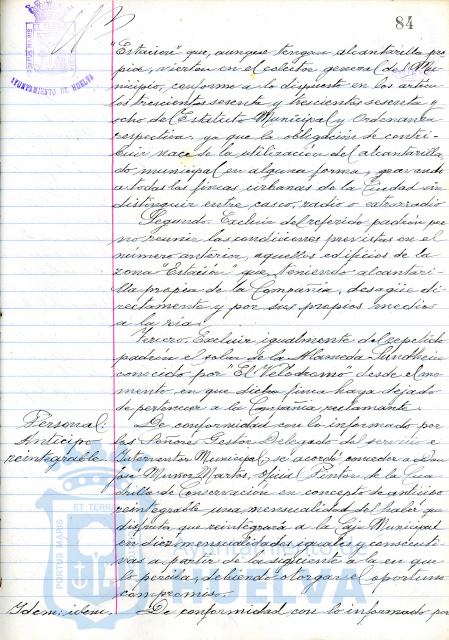 84
AYUNTAMIENTO DE HUELVA
"Estación" que, aunque tengan alcantarilla pro
pia, viertan en el colector general del Mu-
nicipio, conforme a lo dispuesto en los artícu
los trescientos sesenta y trescientos sesenta y
ocho del Estatuto Municipal y Ordenanza
respectiva, ya que la obligación de contri-
buir nace de la utilización del alcantarilla
do municipal en alguna forma, gravando
a todas las fincas urbanas de la Ciudad sin
distinguir entre casco, radio o extrarradio
Segundo. Excluir del referido padrón por
no reunir las condiciones previstas en el
número anterior, aquellos edificios de la
zona "Estación" que, teniendo alcantari-
lla propia de la Compañía, desagüe di-
rectamente y por sus propios medios
a la ría.
Tercero. Excluir igualmente del repetido
padrón el solar de la Alameda Sundheim
conocido por "El Velodromo" desde el mo-
mento, en que dicha finca haya dejado
de pertenecer a la Compañía reclamante.
Personal:
Anticipo
reintegrable
De conformidad con lo informado por
los Señores Gestor Delegado del servicio e
Interventor Municipal, se acordó conceder a Don
José Muñoz Martos, Oficial Pintor de la Cua
drilla de Conservación en concepto de anticipo
reintegrable una mensualidad del haber que
disfruta que reintegrará a la Caja Municipal
en diez mensualidades iguales y consecuti-
vas a partir de la siguiente a la en que
lo perciba, debiendo otorgar el oportuno
compromiso.
Idem: idem.
De conformidad con lo informado por
PORTUS MARIS ET TERRAE
Ayuntamiento de
HUELVA